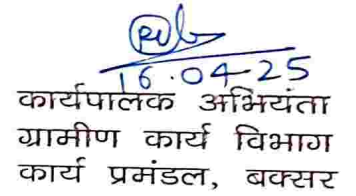 16.04-25
कार्यपालक अभियंता
ग्रामीण कार्य विभाग
कार्य प्रमंडल, बक्सर